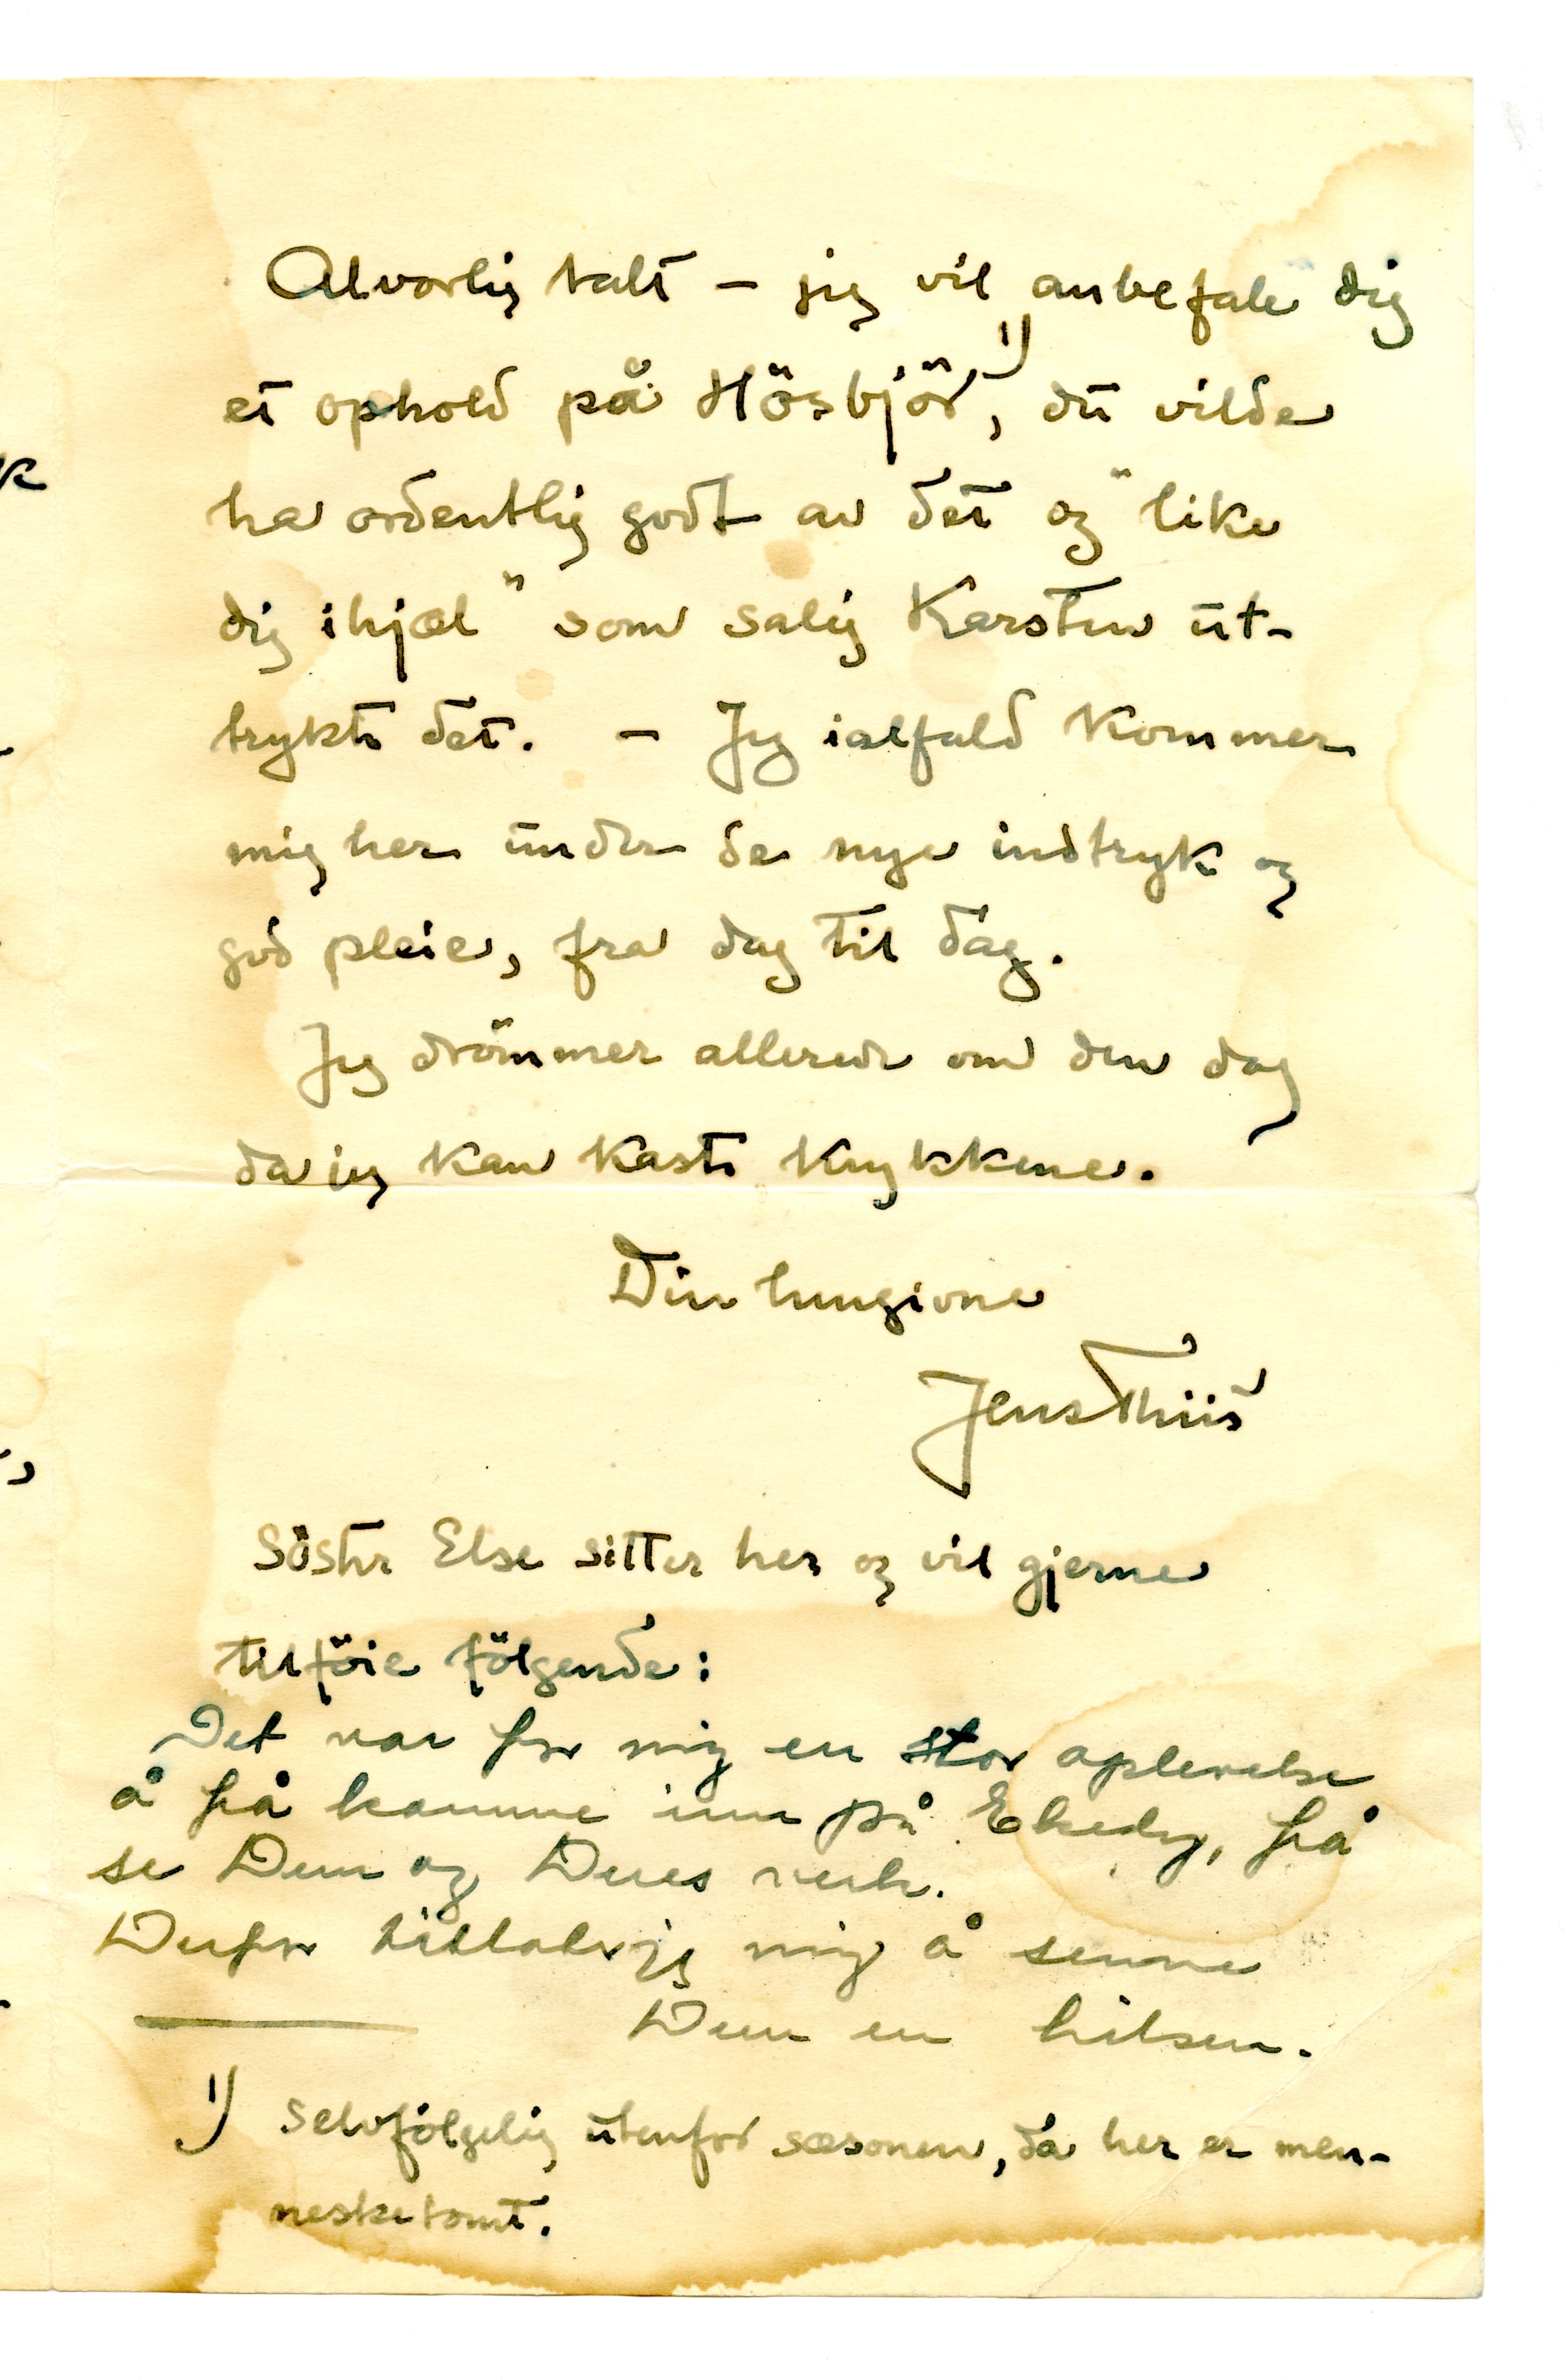 Alvorlig talt – jeg vil anbefale dig
et ophold på Hösbjör,¹⁾ du vilde
ha ordentlig godt av det og "like
dig ihjæl" som salig Karsten ut-
trykte det. – Jeg ialfald kommer
mig her under de nye indtryk og
god pleie, fra dag til dag.
Jeg drömmer allerede om den dag
da jeg kan kaste krykkene.
Din hengivne
Jens Thiis
Söster Else sitter her og vil gjerne
tilföie fölgende:
Det var for mig en stor oplevelse
å få komme inn på Ekely, få
se Dem og Deres verk.
Derfor tillater jeg mig å senne
Dem en hilsen.
1) selvfölgelig utenfor sæsonen, da her er men-
nesketomt.